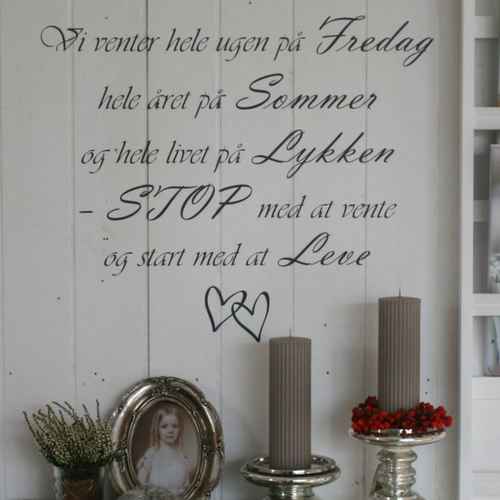 Vi venter hele ugen på Fredag
hele året på Sommer
og hele livet på Lykken
- STOP med at vente
og start med at Leve